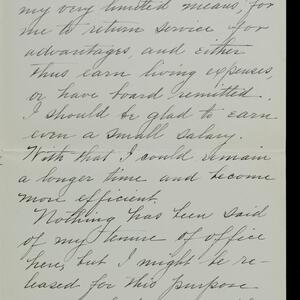 my very limited means, for
me to return service for
advantages, and either
thus earn living expenses,
or have board remitted.
I should be glad to earn
even a small salary.
With that I could remain
a longer time and become
more efficient.
Nothing has been said
of my tenure of office
here, but I might be re-
leased for this purpose